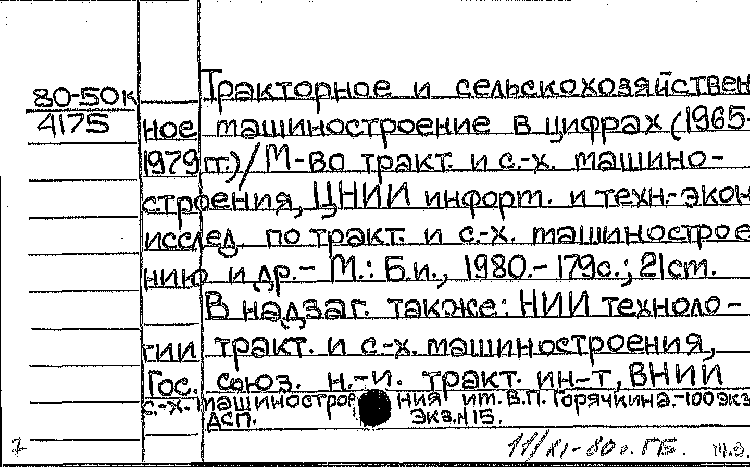 80-50к
4175
Тракторное и сельскохозяйствен
ное машиностроение в цифрах (1965-
1979 гг.) / М-во тракт. и с.-х. машино-
строения, ЦНИИ информ. и техн.-экон
исслед. по тракт. и с.-х. машинострое
нию и др.- М.: Б.и., 1980.- 179с.; 21см.
В надзаг. также: НИИ техноло-
гии тракт. и с-х. машиностроения,
Гос. союз. н.-и. тракт. ин-т, ВНИИ
с.-х. машиностроения им. В.П. Горячкина.-100 экз
ДСП. Экз.N15.
11/XI-80г. ГБ.